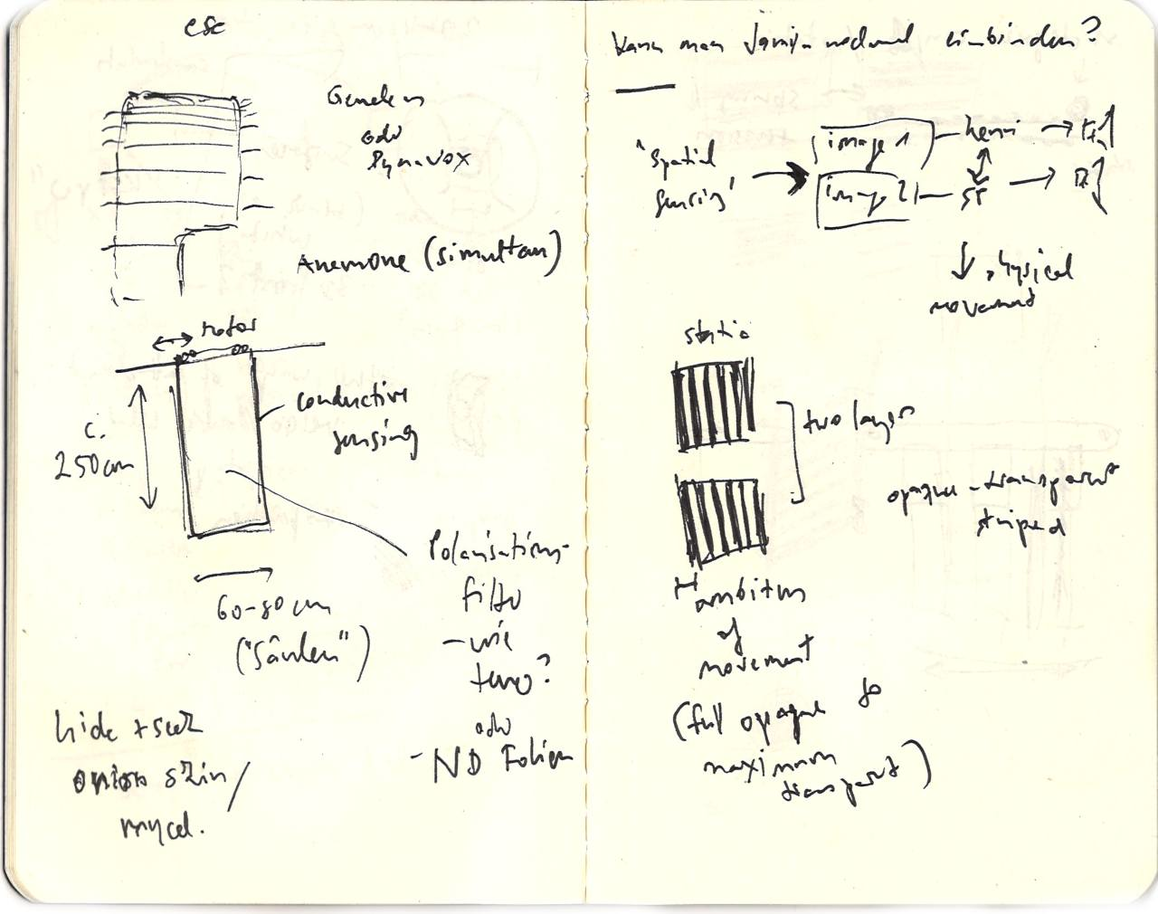 esc
Genelec
oder
Dynavox
Anemone (simultan)
motor
conductive
sensing
c.
250 cm
60-80 cm
("Säulen")
Polarisations-
filter
- wie
teuer?
oder
- ND Folien
hide + seek
onion skin /
mycel.
kann man nochmal einbinden?
"Spatial
sensing"
image 1
henri
image 2
physical
movement
static
two layers
opaque - transparent
striped
ambitus
of
movement
(full opaque to
maximum
transparent)